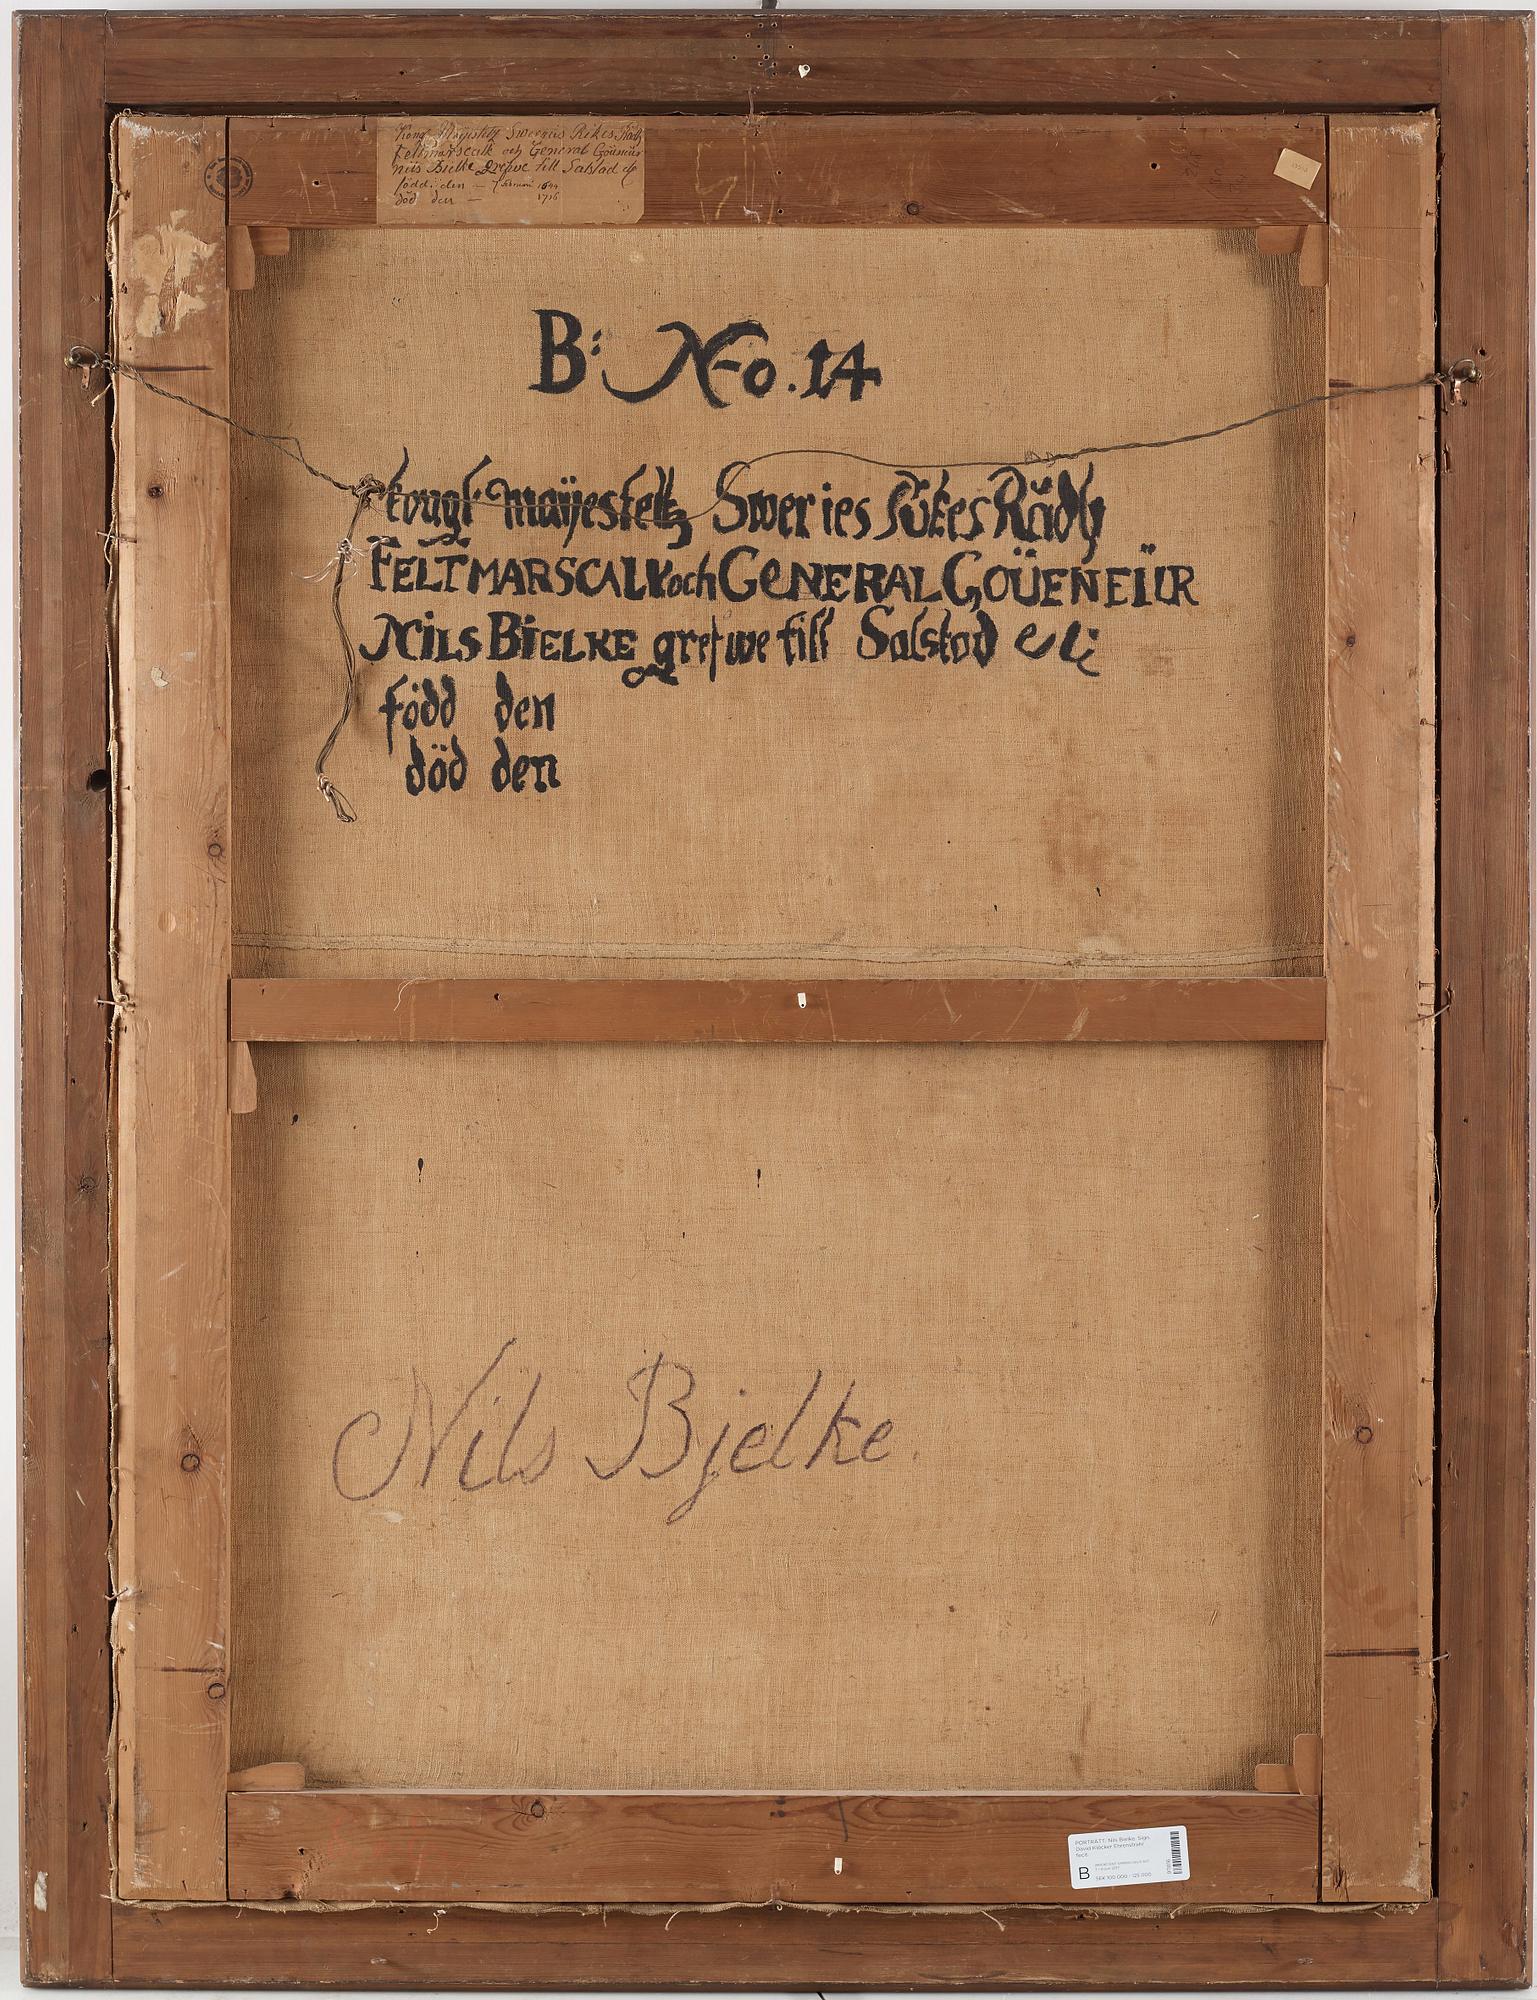 Kongl Majestetz Swergies Rikes Rådh
Feltmarscalk och General Goüeniür
nils Bielke grefwe till Salstad &
född: den — 7 Februari 1644
död den — 1716
B: No. 14
kongl maÿestetz Sweries Rikes Rådh
FELTMARSCALK och GENERAL GOÜENEÜR
NILS BIELKE grefwe till Salstad etc
född den
död den
Nils Bjelke.
PORTRÄTT, Nils Bielke. Sign.
David Klöcker Ehrenstrahl
fecit.
B
SEK 100 000 - 125 000